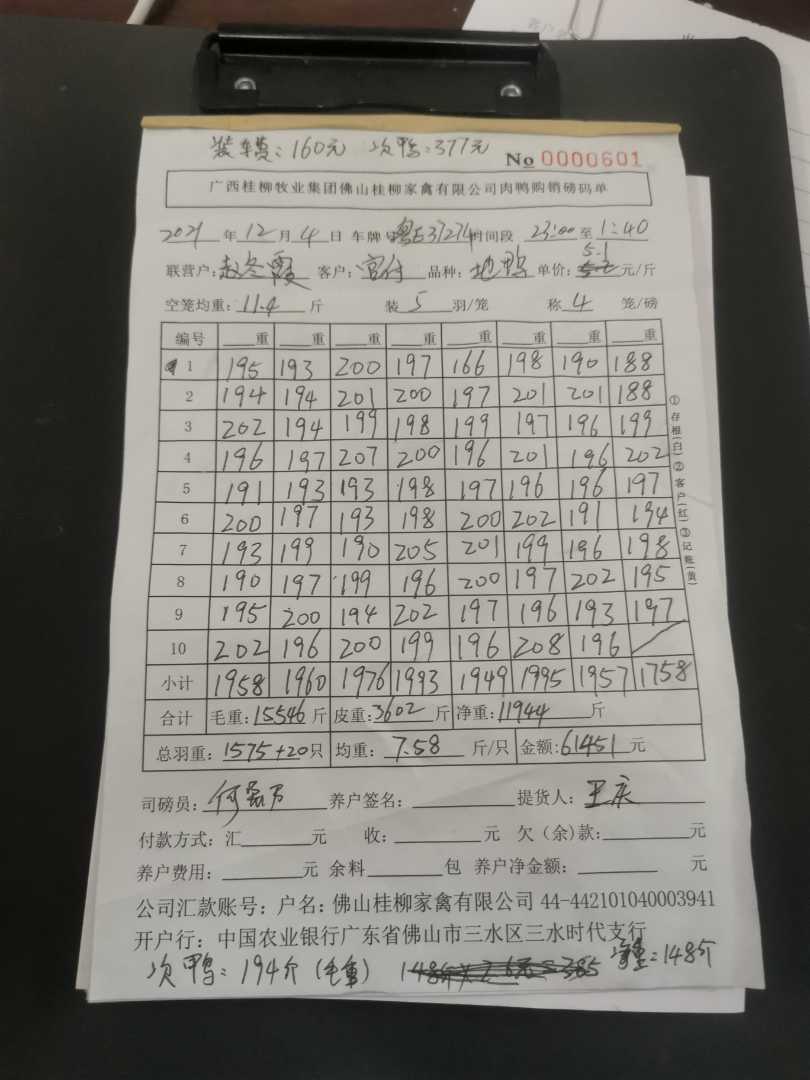 装车费：160元 次鸭：377元
No 0000601
广西桂柳牧业集团佛山桂柳家禽有限公司肉鸭购销磅码单
2021 年 12 月 4 日 车牌号 粤E37274 时间段 23:00 至 1:40
5.1
联营户：赵冬霞 客户：官付 品种：地鸭 单价： 元/斤
空笼均重：11.4 斤 装 5 羽/笼 称 4 笼/磅
编号 重 重 重 重 重 重 重 重
1 195 193 200 197 166 198 190 188
2 194 194 201 200 197 201 201 188
3 202 194 199 198 199 197 196 199
4 196 197 207 200 196 201 196 202
5 191 193 193 198 197 196 196 197
6 200 197 193 198 200 202 191 194
7 193 199 190 205 201 199 196 198
8 190 197 199 196 200 197 202 195
9 195 200 194 202 197 196 193 197
10 202 196 200 199 196 208 196
小计 1958 1960 1976 1993 1949 1995 1957 1758
合计 毛重：15546 斤 皮重：3602 斤 净重：11944 斤
总羽重：1575+20 只 均重：7.58 斤/只 金额：61451 元
①存根(白)②客户(红)③记账(黄)
司磅员：何 养户签名： 提货人：王庆
付款方式：汇 元 收： 元 欠（余）款： 元
养户费用： 元 余料 包 养户净金额： 元
公司汇款账号：户名：佛山桂柳家禽有限公司 44-442101040003941
开户行：中国农业银行广东省佛山市三水区三水时代支行
次鸭：194斤（毛重） 净重=148斤